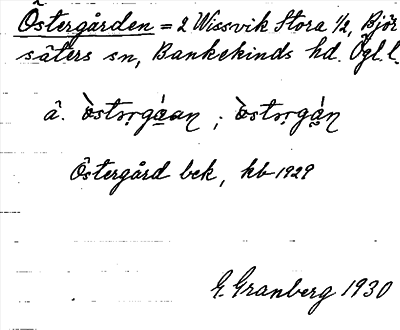 Östergården = 2 Wissvik Stora 1/2, Björ
säters sn, Bankekinds hd. Ögl. l.
â. östọrgá̱an ; östọrgá̱ṇ
Östergård bek, kb 1929
G. Granberg 1930